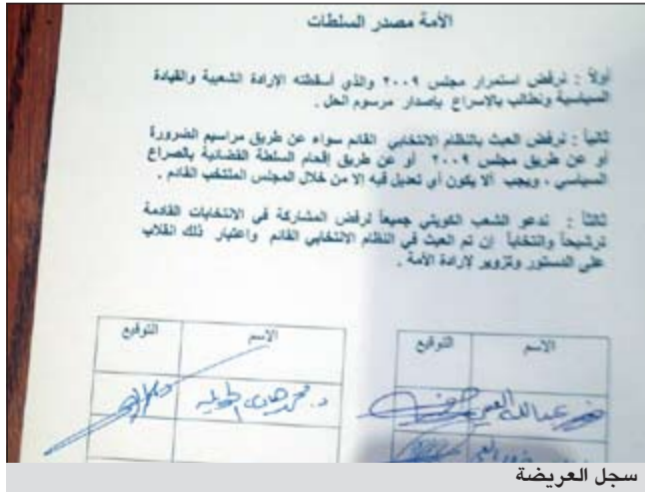 الأمة مصدر السلطات
أولاً : نرفض استمرار مجلس ٢٠٠٩ والذي أسقطته الإرادة الشعبية والقيادة
السياسية ونطالب بالإسراع بإصدار مرسوم الحل .
ثانياً : نرفض العبث بالنظام الانتخابي القائم سواء عن طريق مراسيم الضرورة
أو عن طريق مجلس ٢٠٠٩ أو عن طريق إقحام السلطة القضائية بالصراع
السياسي ، ويجب ألا يكون أي تعديل فيه إلا من خلال المجلس المنتخب القادم .
ثالثاً : ندعو الشعب الكويتي جميعاً لرفض المشاركة في الانتخابات القادمة
ترشيحاً وانتخاباً إن تم العبث في النظام الانتخابي القائم واعتبار ذلك انقلاب
على الدستور وتزوير لإرادة الأمة .
الاسم التوقيع
عبدالله
الاسم التوقيع
د. محمد هادي الحويلة
سجل العريضة